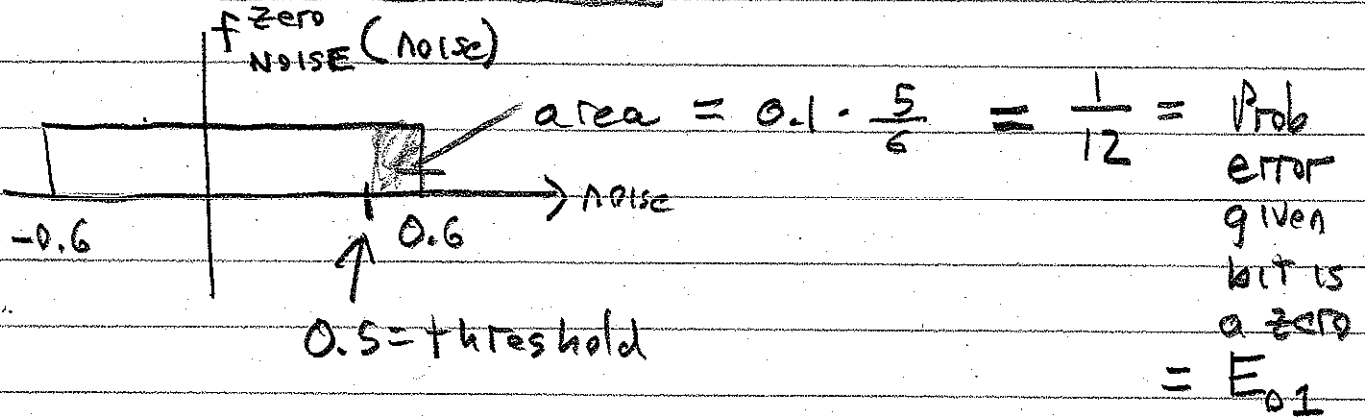 f zero NOISE (noise)
area = 0.1 · 5/6 = 1/12 = Prob
error
given
bit is
a zero
= E01
noise
-0.6
0.6
0.5 = threshold